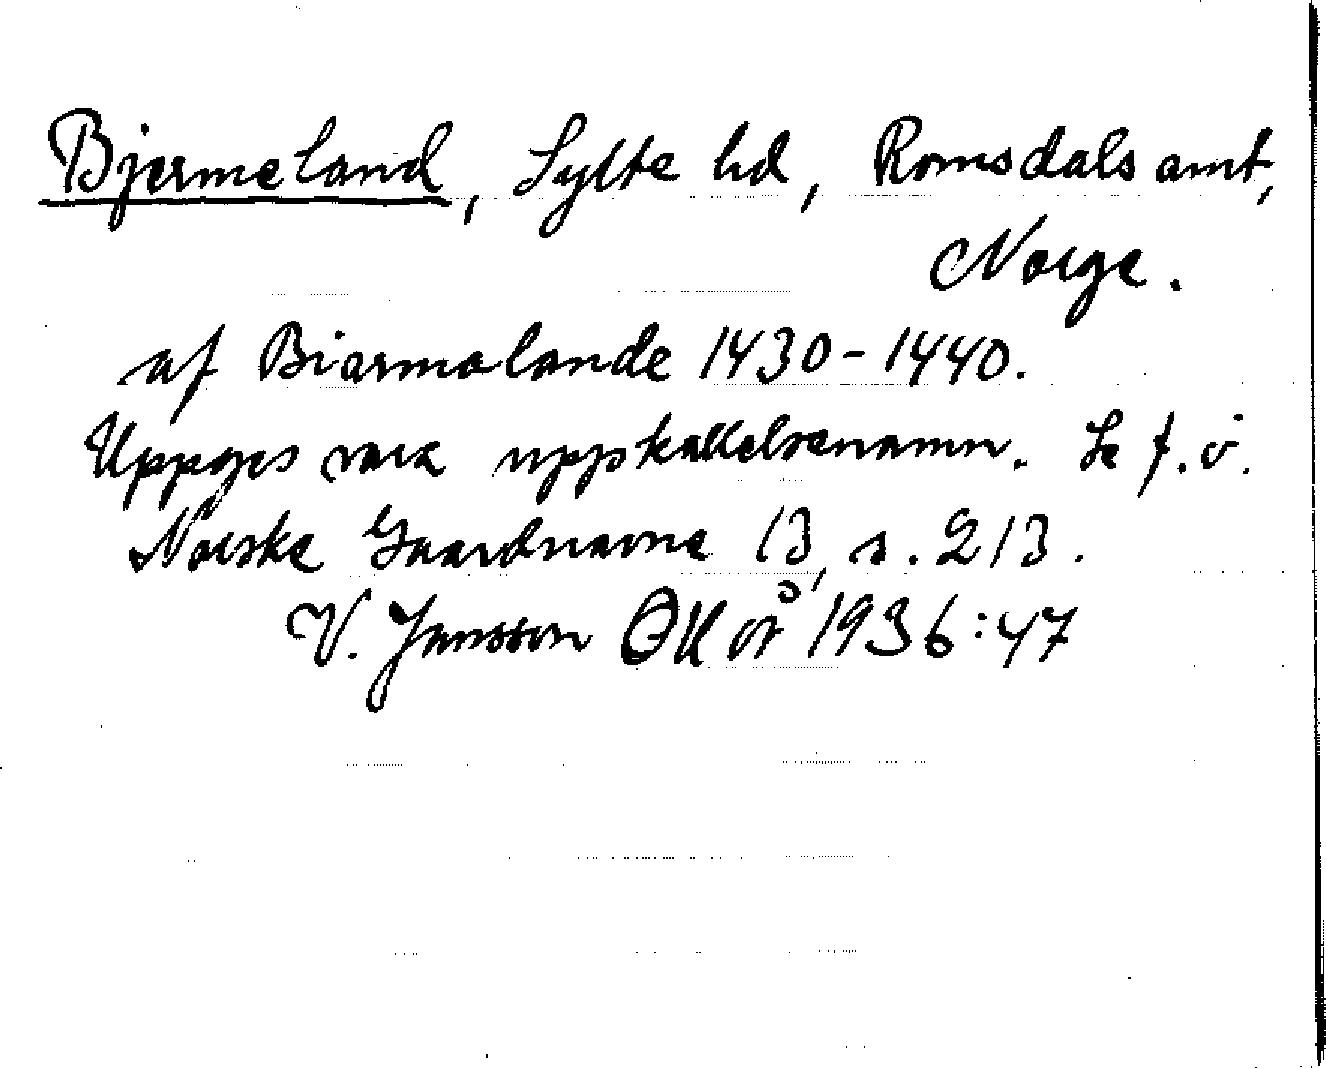 Bjermeland, Sylte hd, Romsdals amt,
Norge.
af Biarmalande 1430-1440.
Uppges vara uppkallelsenamn. Se f. ö.
Norske Gaardnavne 13, s. 213.
V. Jansson OUÅ 1936:47